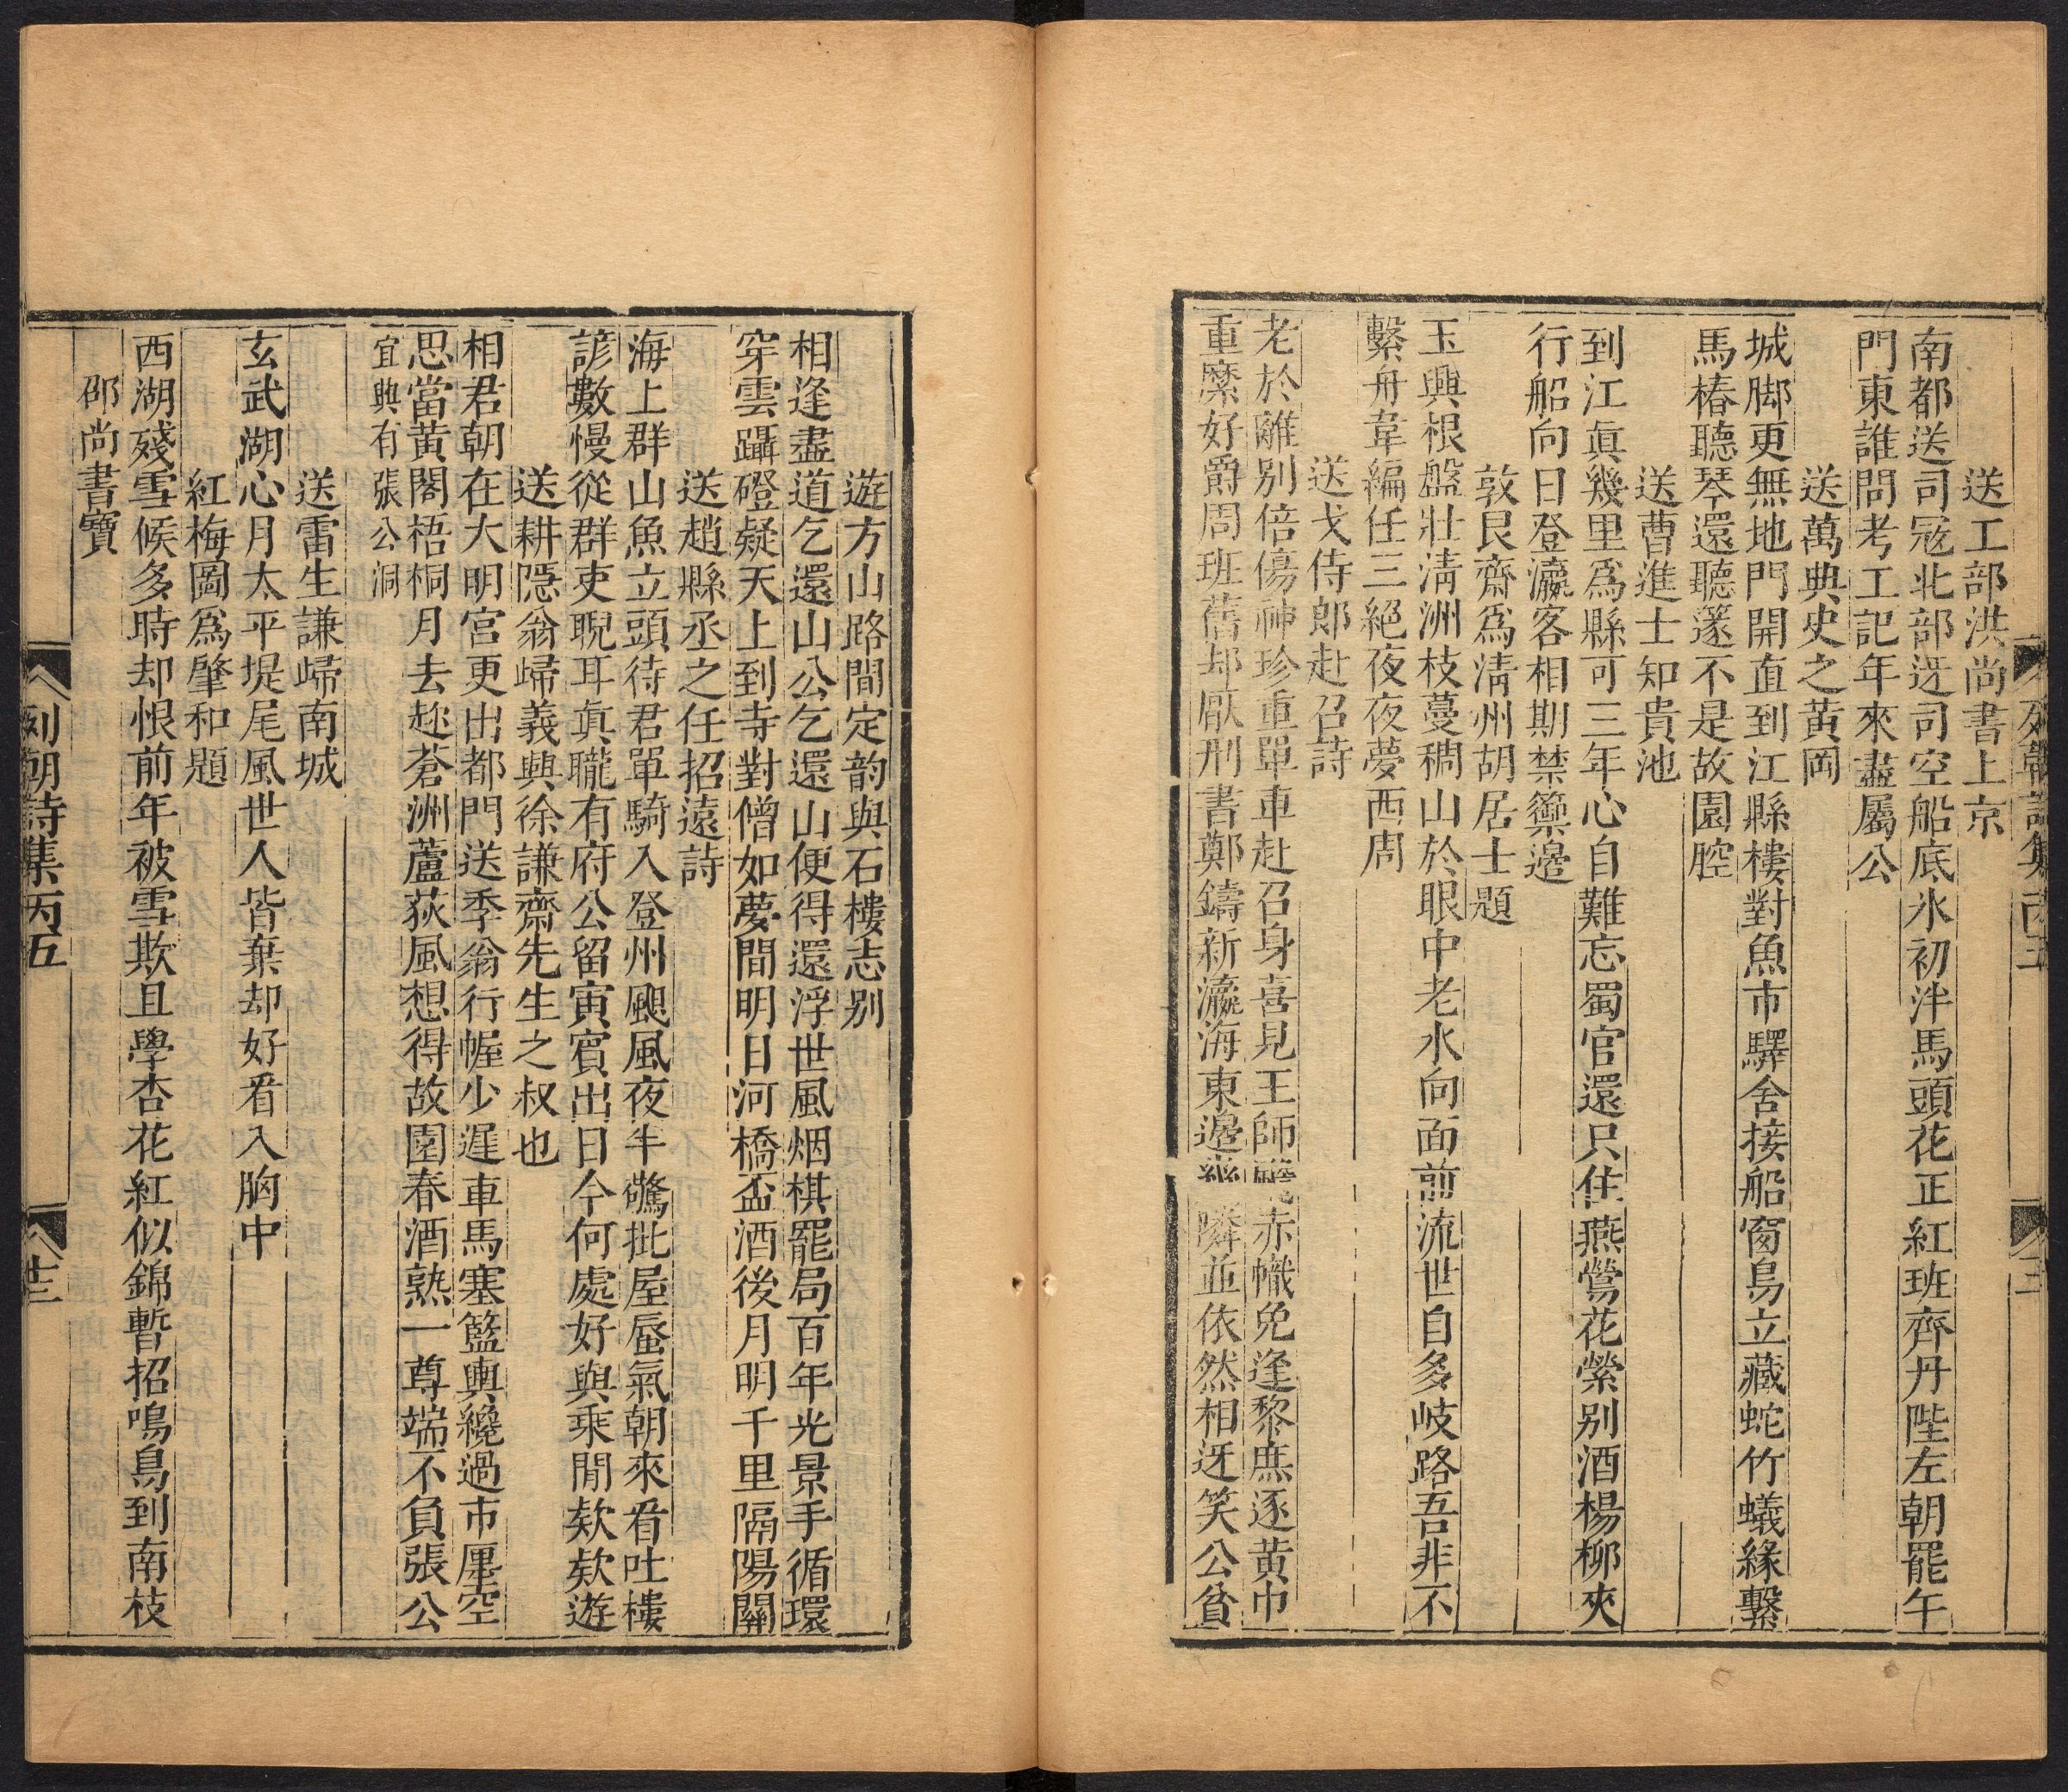 送工部洪尚書上京
南都送司冦北部迓司空船底氷初泮馬頭花正紅班齊丹陛左朝罷午
門東誰問考工記年來盡屬公
送萬典史之黄岡
城脚更無地門開直到江縣樓對魚市驛舍接船窗鳥立藏蛇竹蟻緣繫
馬樁聽琴還聽篴不是故園腔
送曹進士知貴池
到江真幾里爲縣可三年心自難忘蜀官還只住燕鶯花縈别酒楊柳夾
行船向日登瀛客相期禁籞邊
敦艮齋爲清州胡居士題
玉興根盤壯淸洲枝蔓稠山於眼中老水向面前流世自多岐路吾非不
繫舟韋編任三絕夜夜夢西周
送戈侍郎赴召詩
老於離别倍傷神珍重單車赴召身喜見王師 赤幟免逢黎庶逐黄巾
重縻好爵周班舊却厭刑書鄭鑄新瀛海東邊 隣並依然相迓笑公貧
列朝詩集丙五
遊方山路間定韵與石樓志别
相逢盡道乞還山公乞還山便得還浮世風烟棋罷局百年光景手循環
穿雲躡磴疑天上到寺對僧如夢間明日河橋盃酒後月明千里隔陽關
送趙縣丞之任招遠詩
海上群山魚立頭待君單騎入登州颶風夜半驚批屋蜃氣朝來看吐樓
諺數慢從群吏睨耳真聾有府公留寅賓出日今何處好與乘閒欵欵遊
送耕隱翁歸義興徐謙齋先生之叔也
相君朝在大明宮更出都門送季翁行幄少遲車馬塞籃輿纔過市廛空
思當黄閣梧桐月去趂蒼洲蘆荻風想得故園春酒熟一尊端不負張公
宜興有張公洞
送雷生謙歸南城
玄武湖心月太平堤尾風世人皆棄却好看入胸中
紅梅圖爲肇和題
西湖殘雪候多時却恨前年被雪欺且學杏花紅似錦暫招鳴鳥到南枝
邵尚書寶
列朝詩集丙五